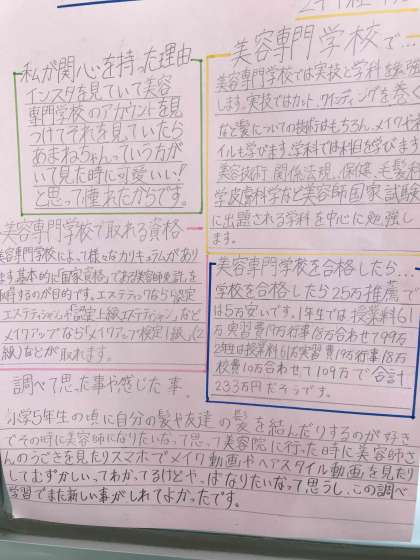 私が関心を持った理由
インスタを見ていて美容
専門学校のアカウントを見
つけてそれを見ていたら
あまねちゃんっていう方が
いて見た時に可愛い!!
と思って憧れたからです。
美容専門学校で…
美容専門学校では実技と学科を勉強
します。実技ではカット、ワインディングを巻く
など髪についての技術はもちろん、メイクやネ
イルも学びます。学科では科目を学びます
美容技術、関係法規、保健、毛髪科
学皮膚科学など美容師国家試験
に出題される学科を中心に勉強し
ます。
美容専門学校で取れる資格
美容専門学校によって様々なカリキュラムがあり
ます基本的に「国家資格」である美容師免許」を
取得するのが目的です。エステティックなら「認定
エステティシャン」や「認定上級エステティシャン」など
メイクアップなら「メイクアップ検定1級」(2
級)などが取れます。
美容専門学校を合格したら…
学校を合格したら25万推薦で
は5万安いです。1年生では授業料61
万実習費19万行事18万合わせて99万
2年生は授業料61万実習費19万行事18万
校費10万合わせて109万で合計
233万円だそうです。
調べて思った事や感じた事。
小学5年生の頃に自分の髪や友達の髪を結んだりするのが好き
でその時に美容師になりたいなって思って美容院に行った時に美容師さ
んのうごきを見たりスマホでメイク動画やヘアスタイル動画を見たり
してむずかしいってわかってるけどや、はなりたいなって思うし、この調べ
学習でまた新しい事がしれてよかったです。